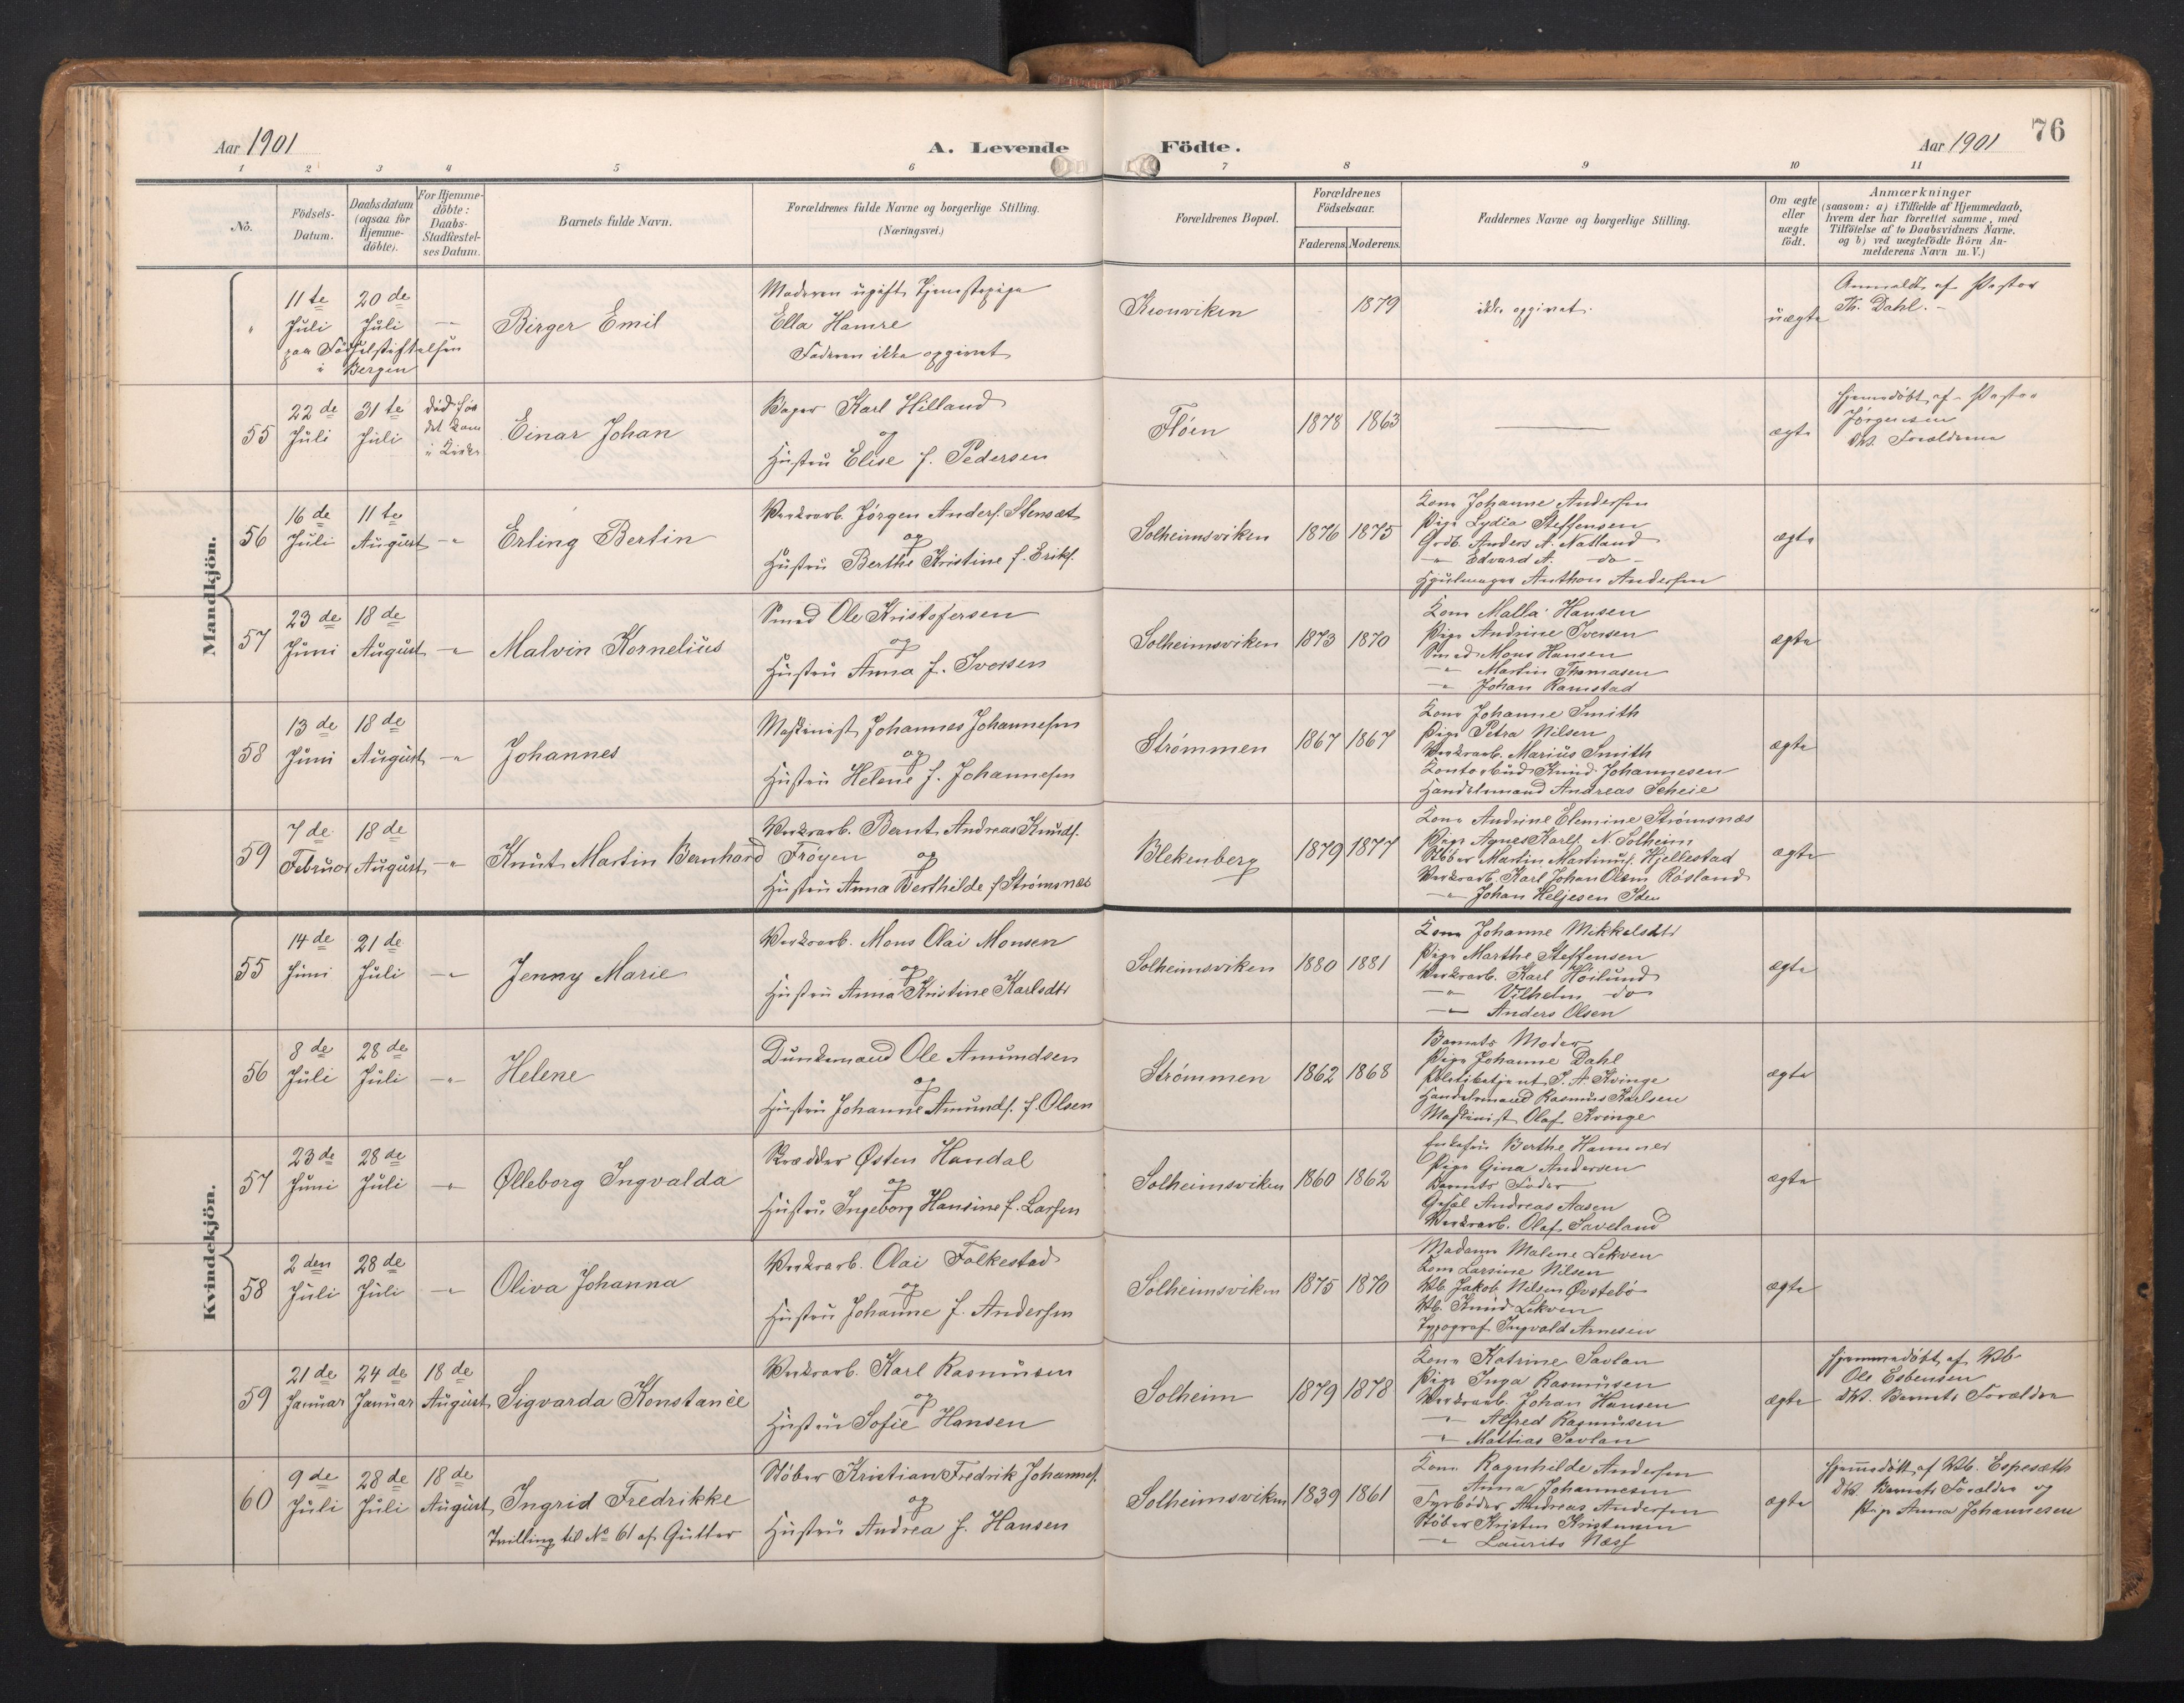 76
Aar 1901
A. Levende Födte.
Aar 1901
1 2 3 4 5 6 7 8 9 10 11
No.
Födsels-
Datum.
Daabsdatum
(ogsaa for
Hjemme-
döbte).
For Hjemme-
döbte:
Daabs-
Stadfæstel-
ses Datum.
Barnets fulde Navn.
Forældrenes fulde Navne og borgerlige Stilling.
(Næringsvei.)
Forældrenes Bopæl.
Forældrenes
Födselsaar.
Faderens. Moderens.
Faddernes Navne og borgerlige Stilling.
Om ægte
eller
uægte
födt.
Anmærkninger
(saasom: a) i Tilfælde af Hjemmedaab,
hvem der har forrettet samme, med
Tilföielse af to Daabsvidners Navne.
og b) ved uægtefödte Börn An-
melderens Navn m. V.)
Mandkjön.
" 11te Juli 20de Juli -"-
paa Födselsstiftelsen
i Bergen
Birger Emil
Moderen ugift Tjenestepige
Ella Hamre
Faderen ikke opgivet
Kronviken
1879
ikke opgivet.
uægte
Anmeldt af Pastor
Th. Dahl.
55 22de Juli 31te Juli
død før
det kom
i Kirke
Einar Johan
Bager Karl Hilland
og
Hustru Elise f. Pedersen
Flöen
1878 1863
ægte
Hjemmedöbt af Pastor
Jørgensen
DV. Forældrene
56 16de Juli 11te August -"-
Erling Bertin
Verksarb. Jørgen Anders. Stensæt
og
Hustru Berthe Kristine f. Eriks.
Solheimsviken
1876 1875
Kone Johanne Andersen
Pige Lydia Steffensen
Grdb. Anders A. Natland
-"- Edvard A. -do-
Hjulmager Anthon Andersen
ægte
57 23de Juni 18de August -"-
Malvin Kornelius
Smed Ole Kristofersen
og
Hustru Anna f. Iversen
Solheimsviken
1873 1870
Kone Malla Hansen
Pige Andrine Iversen
Smed Mons Hansen
-"- Martin Thomasen
-"- Johan Ramstad
ægte
58 13de Juni 18de August -"-
Johannes
Maskinist Johannes Johannesen
og
Hustru Helene f. Johannesen
Strømmen
1867 1867
Kone Johanne Smith
Pige Petra Nilsen
Verksarb. Marius Smith
Kontorbud Knud Johannesen
Handelsmand Andreas Scheie
ægte
59 7de Februar 18de August -"-
Knut Martin Bernhard
Verksarb. Bernt Andreas Knuds.
Frøyen og
Hustru Anna Berthilde f. Strømsnæs
Blekenberg
1879 1877
Kone Andrine Elemine Strømsnæs
Pige Agnes Karls. N. Solheim
Støber Martin Martinus. Hjellestad
Verksarb. Karl Johan Olsen Røsland
-"- Johan Heljesen Iden
ægte
Kvindekjön.
55 14de Juni 21de Juli -"-
Jenny Marie
Verksarb. Mons Olai Monsen
og
Hustru Anna Kristine Karlsdtr
Solheimsviken
1880 1881
Kone Johanne Mikkelsdtr
Pige Marthe Steffensen
Verksarb. Karl Höilund
-"- Vilhelm do
-"- Anders Olsen
ægte
56 8de Juli 28de Juli -"-
Helene
Dunkemand Ole Amundsen
og
Hustru Johanne Amunds. f. Olsen
Strømmen
1862 1868
Barnets Moder
Pige Johanne Dahl
Politibetjent J. A. Kvinge
Handelsmand Rasmus Karlsen
Maskinist Olaf Kvinge
ægte
57 23de Juni 28de Juli -"-
Ølleborg Ingvalda
Skrædder Østen Handal
og
Hustru Ingeborg Hansine f. Larsen
Solheimsviken
1860 1862
Enkefru Berthe Hammer
Pige Gina Andersen
Barnets Fader
Gesel Andreas Aasen
Verksarb. Olaf Saveland
ægte
58 2den Juli 28de Juli -"-
Oliva Johanna
Verksarb. Olai Folkestad
og
Hustru Johanne f. Andersen
Solheimsviken
1875 1870
Madame Malene Lekven
Kone Larsine Nilsen
Vb. Jakob Nilsen Øvstebö
Vb. Knud Lekven
Typograf Ingvald Arnesen
ægte
59 21de Januar 24de Januar 18de August
Sigvarda Konstance
Verksarb. Karl Rasmusen
og
Hustru Sofie Hansen
Solheim
1879 1878
Kone Katrine Savlan
Pige Inga Rasmusen
Verksarb. Johan Hansen
-"- Alfred Rasmusen
-"- Mattias Savlan
ægte
Hjemmedöbt af Vb.
Ole Esbensen
DV. Barnets Forældre
60 9de Juli 28de Juli 18de August
Ingrid Fredrikke
Tvilling til No 61 af Gutter
Støber Kristian Fredrik Johannes.
og
Hustru Andrea f. Hansen
Solheimsviken
1839 1861
Kone Ragnhilde Andersen
-"- Anna Johannesen
Fyrbøder Andreas Andersen
Støber Kristen Kristensen
-"- Laurits Næss
ægte
Hjemmedöbt af Vb. Espesæth
DV. Barnets Forældre og
Pige Anna Johannesen